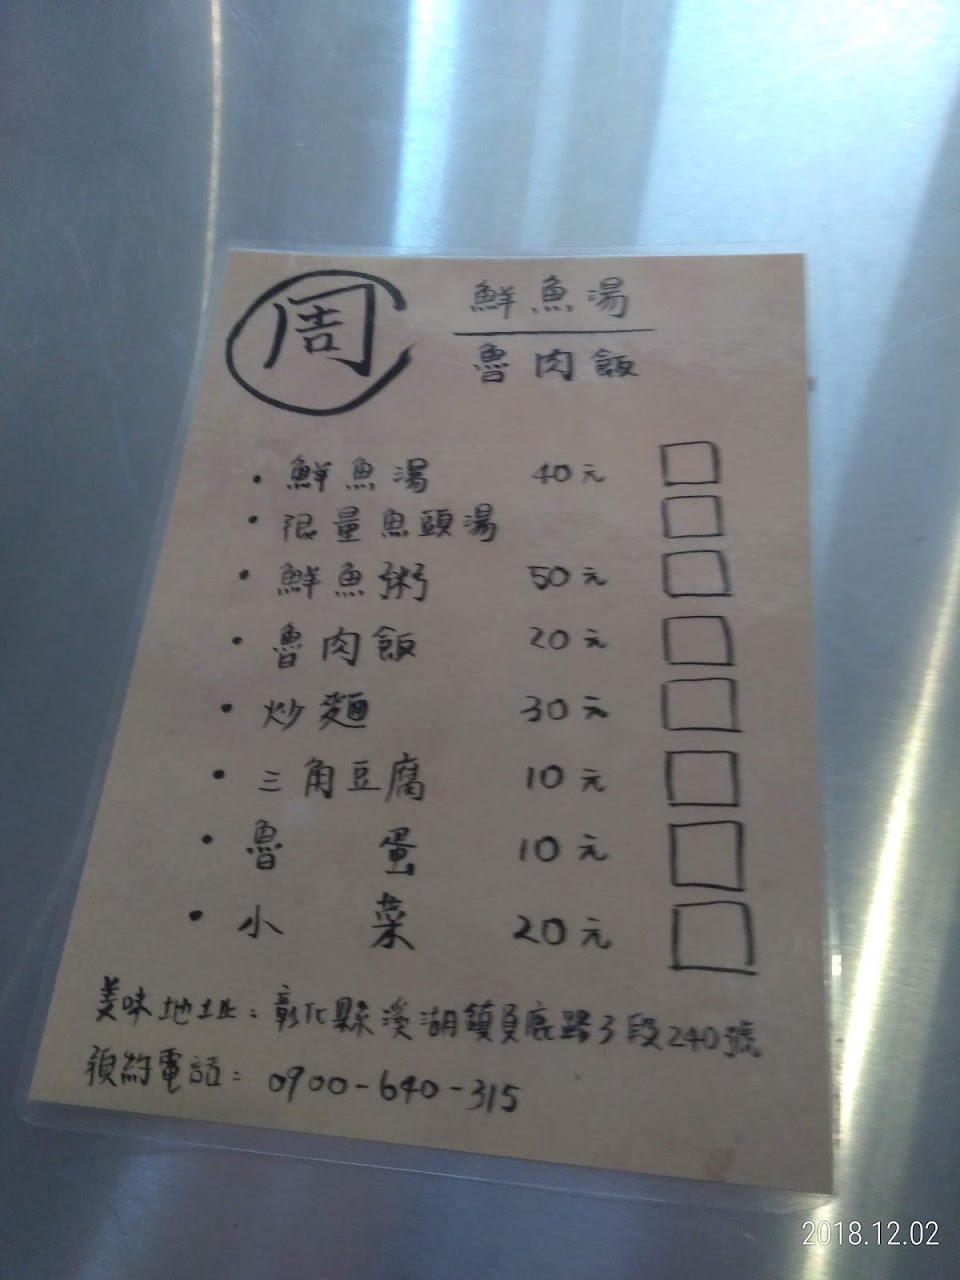 周
鮮魚湯
魯肉飯
• 鮮魚湯 40元
• 限量魚頭湯
• 鮮魚粥 50元
• 魯肉飯 20元
• 炒麵 30元
• 三角豆腐 10元
• 魯蛋 10元
• 小菜 20元
美味地址：彰化縣溪湖鎮員鹿路3段240號
預約電話：0900-640-315
2018.12.02